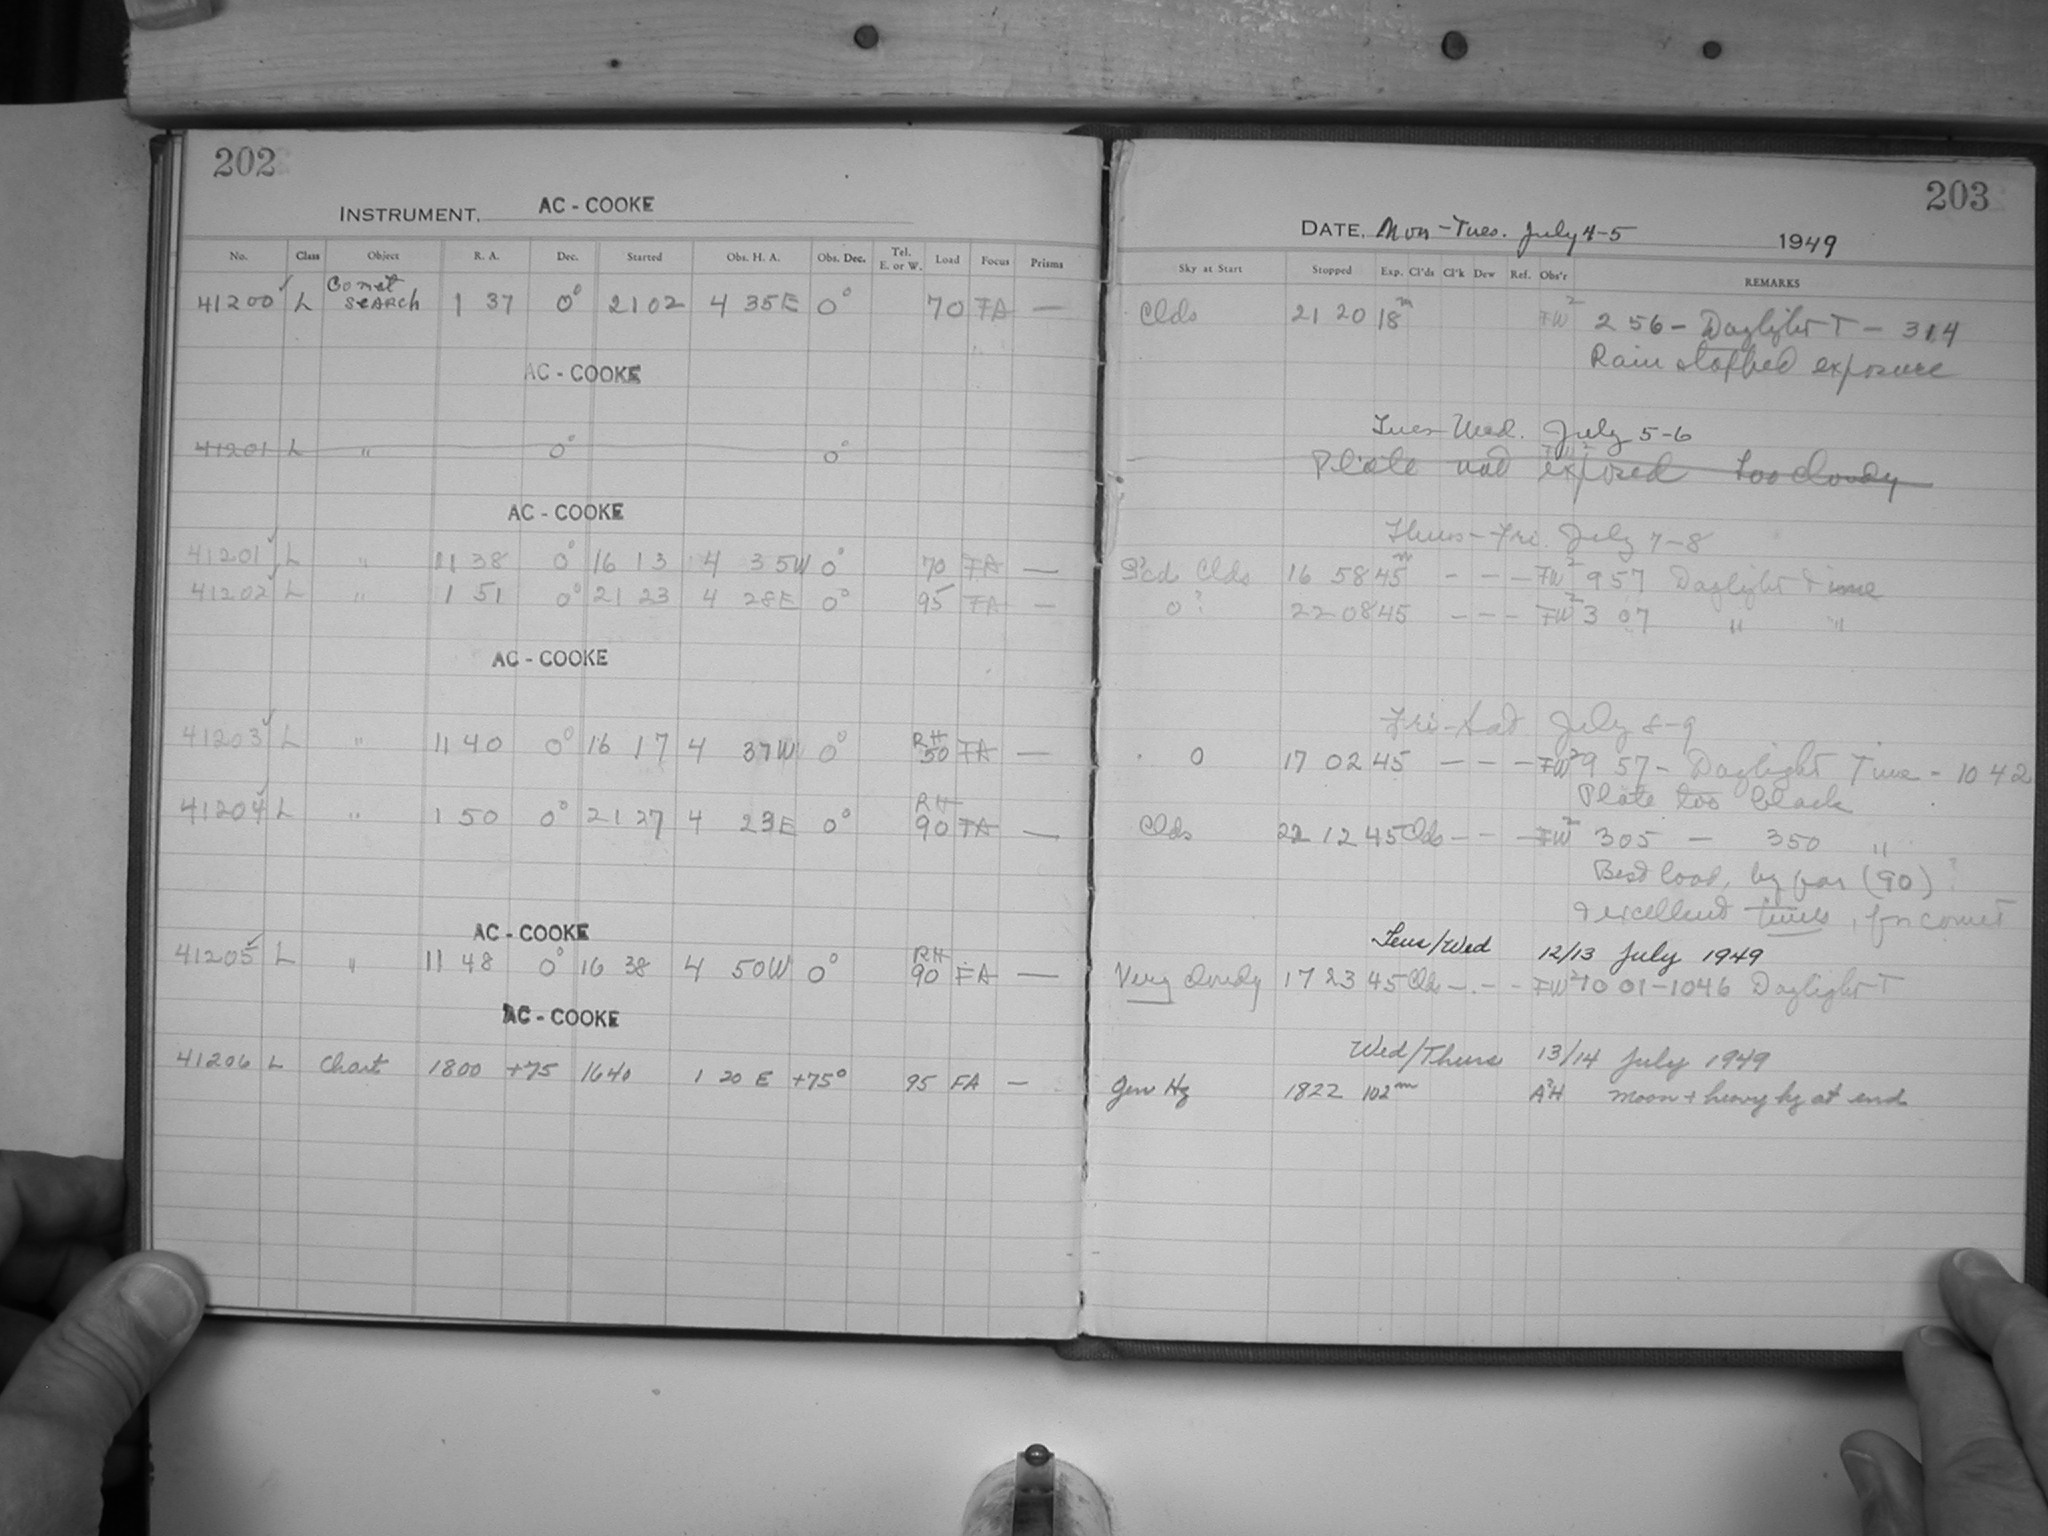 202
INSTRUMENT, AC - COOKE
No. Class Object R. A. Dec. Started Obs. H. A. Obs. Dec. Tel. E. or W. Load Focus Prisms
41200 ✓ L Comet SEARCH 1 37 0° 21 02 4 35E 0° 70 FA —
AC - COOKE
41201 L " 0° 0°
AC - COOKE
41201 ✓ L " 11 38 0° 16 13 4 35W 0° 70 FA —
41202 ✓ L " 1 51 0° 21 23 4 28E 0° 95 FA —
AC - COOKE
41203 ✓ L " 11 40 0° 16 17 4 37W 0° RH 50 FA —
41204 ✓ L " 1 50 0° 21 27 4 23E 0° RH 90 FA —
AC - COOKE
41205 ✓ L " 11 48 0° 16 38 4 50W 0° RH 90 FA —
AC - COOKE
41206 L Chart 1800 +75 1640 1 20 E +75° 95 FA —
203
DATE, Mon-Tues. July 4-5 1949
Sky at Start Stopped Exp. Cl'ds Cl'k Dew Ref. Obs'r REMARKS
Clds 21 20 18m FW² 2 56 - Daylight T - 3 14
Rain stopped exposure
Tues-Wed. July 5-6
Plate not exposed too cloudy
Thurs-Fri. July 7-8
Sc'd Clds 16 58 45m - - - FW² 9 57 Daylight Time
0? 22 08 45 - - - FW² 3 07 " "
Fri-Sat July 8-9
0 17 02 45 - - - FW² 9 57 - Daylight Time - 10 42
Plate too black
Clds 22 12 45 Clds - - - FW² 305 - 350 "
Best load, by far (90)?
& excellent times, for comet
Tues/Wed 12/13 July 1949
Very cloudy 17 23 45 Clds - - - FW² 10 01-1046 Daylight T
Wed/Thurs 13/14 July 1949
Gen Hz 1822 102m A²H Moon + heavy hz at end